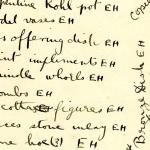 pentine Kohl pot EH
del vases EH
s offering dish EH
int impliments EH
indle whorls EH
ombs EH
cotta figures EH
ces stone inlay EH
ne hoe(?) EH
Bronze Dish EH